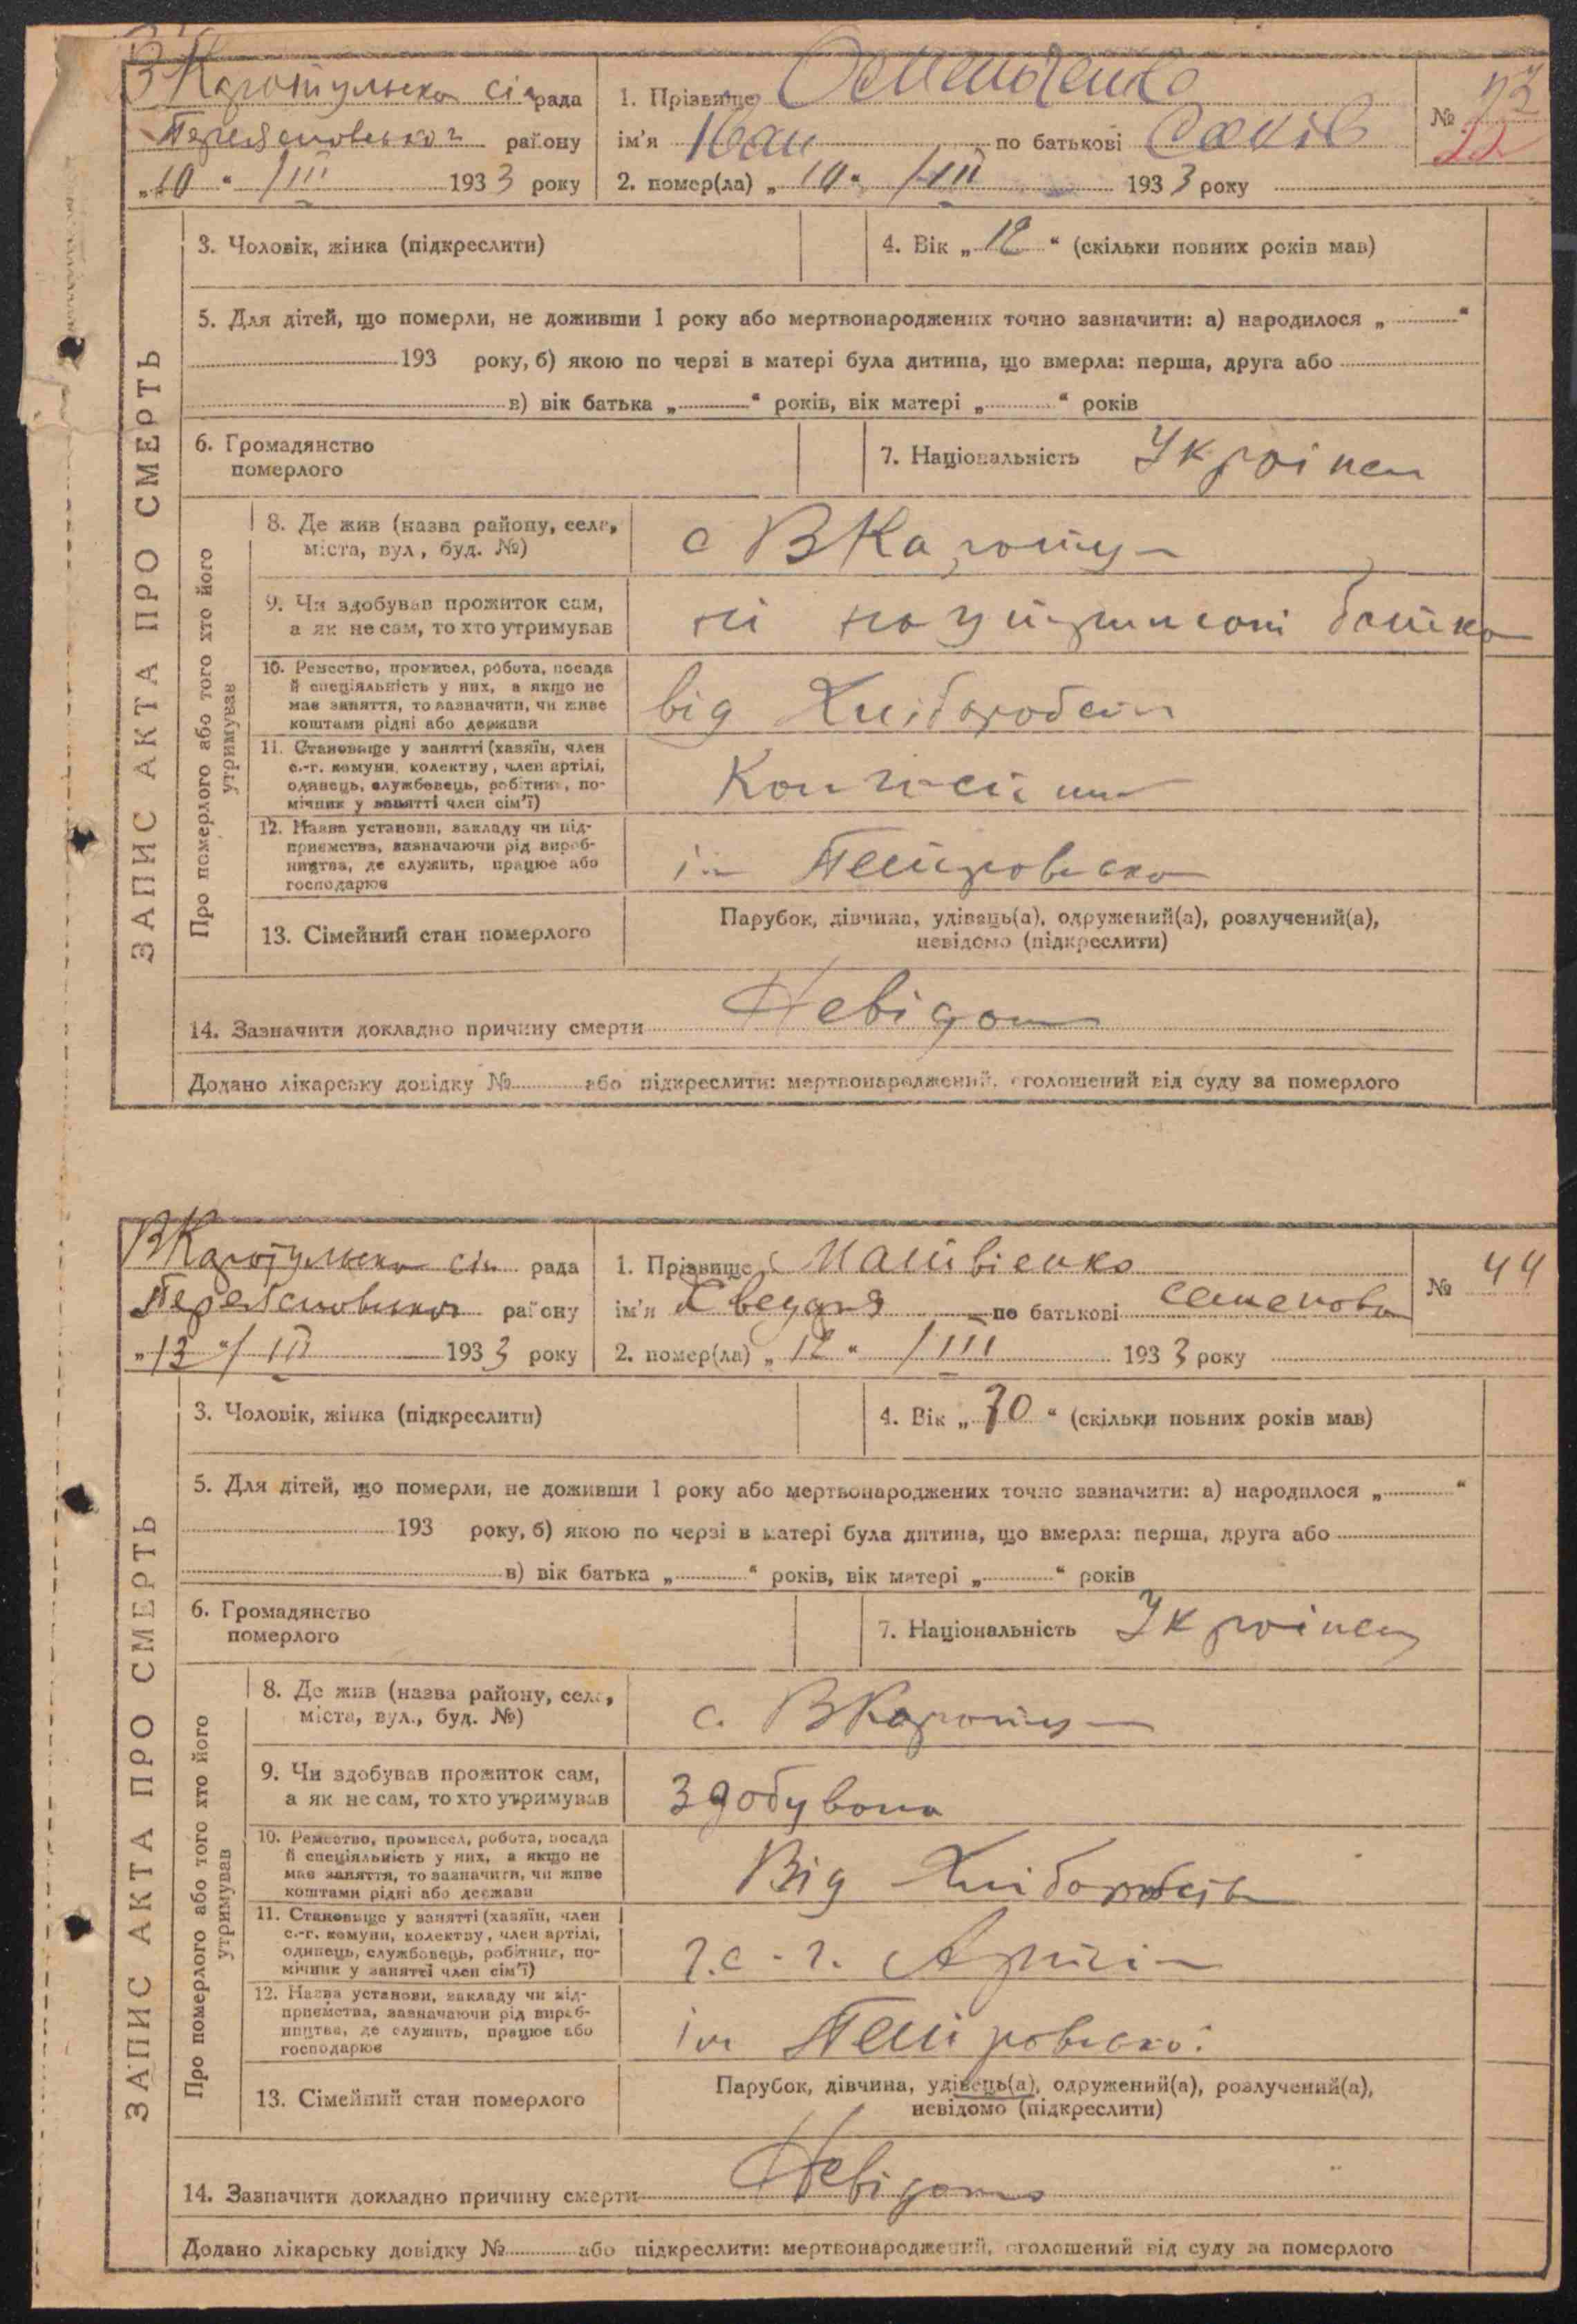 ЗАПИС АКТА ПРО СМЕРТЬ
В Каратульська сіл рада
Переяславського району
„10“ /III 1933 року
1. Прізвище Омельченко
ім'я Іван по батькові Саків
2. помер(ла) „10“ /III 1933 року
№ 43
22
3. Чоловік, жінка (підкреслити)
4. Вік „12“ (скільки повних років мав)
5. Для дітей, що померли, не доживши 1 року або мертвонароджених точно зазначити: а) народилося „ “
193 року, б) якою по черзі в матері була дитина, що вмерла: перша, друга або
в) вік батька „ “ років, вік матері „ “ років
6. Громадянство
померлого
7. Національність Украінец
Про померлого або того хто його
утримував
8. Де жив (назва району, села,
міста, вул, буд. №)
с В Каратул
9. Чи здобував прожиток сам,
а як не сам, то хто утримував
ні на утриманні батька
10. Ремество, промисел, робота, посада
й спеціяльність у них, а якщо не
має заняття, то зазначити, чи живе
коштами рідні або держави
від Хліборобств
11. Становище у занятті (хазяїн, член
с.-г. комуни, колективу, член артілі,
одинець, службовець, робітник, по-
мічник у занятті член сім'ї)
12. Назва установи, закладу чи під-
приємства, зазначаючи рід вироб-
ництва, де служить, працює або
господарює
ім Петровсько
13. Сімейний стан померлого
Парубок, дівчина, удівець(а), одружений(а), розлучений(а),
невідомо (підкреслити)
14. Зазначити докладно причину смерти Невідом
Додано лікарську довідку № або підкреслити: мертвонароджений, оголошений від суду за померлого
ЗАПИС АКТА ПРО СМЕРТЬ
В Каратульська сіл рада
Переяславського району
„13“ / III 1933 року
1. Прізвище Матвіенко
ім'я Явдоля по батькові Семенова
2. помер(ла) „12“ /III 1933 року
№ 44
3. Чоловік, жінка (підкреслити)
4. Вік „70“ (скільки повних років мав)
5. Для дітей, що померли, не доживши 1 року або мертвонароджених точно зазначити: а) народилося „ “
193 року, б) якою по черзі в матері була дитина, що вмерла: перша, друга або
в) вік батька „ “ років, вік матері „ “ років
6. Громадянство
померлого
7. Національність Украінец
Про померлого або того хто його
утримував
8. Де жив (назва району, села,
міста, вул., буд. №)
с. В Каратул
9. Чи здобував прожиток сам,
а як не сам, то хто утримував
Здобувала
10. Ремество, промисел, робота, посада
й спеціяльність у них, а якщо не
має заняття, то зазначити, чи живе
коштами рідні або держави
Від Хліборобств
11. Становище у занятті (хазяїн, член
с.-г. комуни, колективу, член артілі,
одинець, службовець, робітник, по-
мічник у занятті член сім'ї)
с-г. Артіл
12. Назва установи, закладу чи під-
приємства, зазначаючи рід вироб-
ництва, де служить, працює або
господарює
ім Петровсько
13. Сімейний стан померлого
Парубок, дівчина, удівець(а), одружений(а), розлучений(а),
невідомо (підкреслити)
14. Зазначити докладно причину смерти Невідомо
Додано лікарську довідку № або підкреслити: мертвонароджений, оголошений від суду за померлого